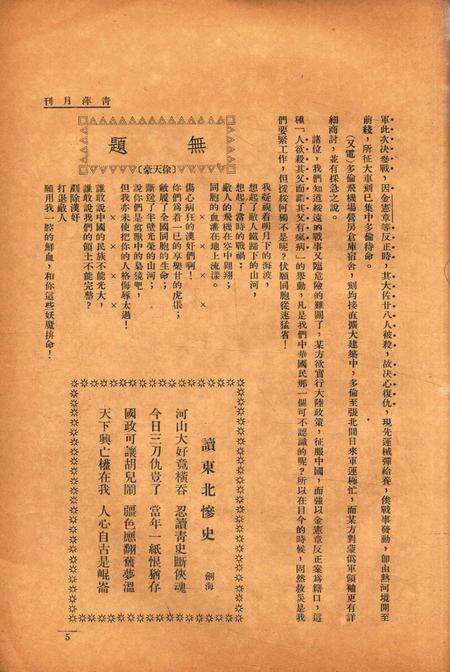 刊月萍青
軍此次決參戰，因金憲章等反正時，其大佐廿八人被殺，故決心復仇，現先運械彈給養，俟戰事發動，卽由熱河境開至
前綫，所征大車則已集中多倫待命。
（又電）多倫飛機場營房倉庫宿舍，刻均接直擴大建築中，多倫至張北間日來軍運極忙，而某方對蒙僞軍領袖更有詳
細商討，並有採急之說。
諸位，我們知道綏遠的戰事又臨危險的難關了，某方欲實行大陸政策，征服中國，而強以金憲章反正案為藉口，這
種「人欲殺其父而謂其父有瘋病」的舉動，凡是我們中華國民那一個可不認識的呢？所以在目今的時候，固然救災是我
們要緊工作，但援綏何獨不是呢？伏願同胞從速猛省！
無題
（徐天豪）
我凝視着明月下的海浪，
想起了敵人鐵蹄下的山河，
想起了當時的戰禍：
敵人的飛機在空中翺翔；
同胞的血灑在地上流漾。
× × × ×
傷心病狂的漢奸們啊！
你們為着一己的享樂甘的虎倀；
敵履了全國同胞的生命；
斷送了半壁光榮的山河；
說你們是禽獸中的梟獍吧，
但我亦未使把你的人格侮辱太過！
× × × ×
誰敢說中國的民族不能光大，
誰敢說我們的領土不能完整？
剷除漢奸
打退敵人
願用我一腔的鮮血，和你這些妖魔拚命！
讀東北慘史
劍海
河山大好竟橫吞　忍讀靑史斷俠魂
今日三刀仇豈了　當年一紙恨猶存
國政可讓胡兒鬧　疆色應翻舊夢溫
天下興亡權在我　人心自古是崐崙
5